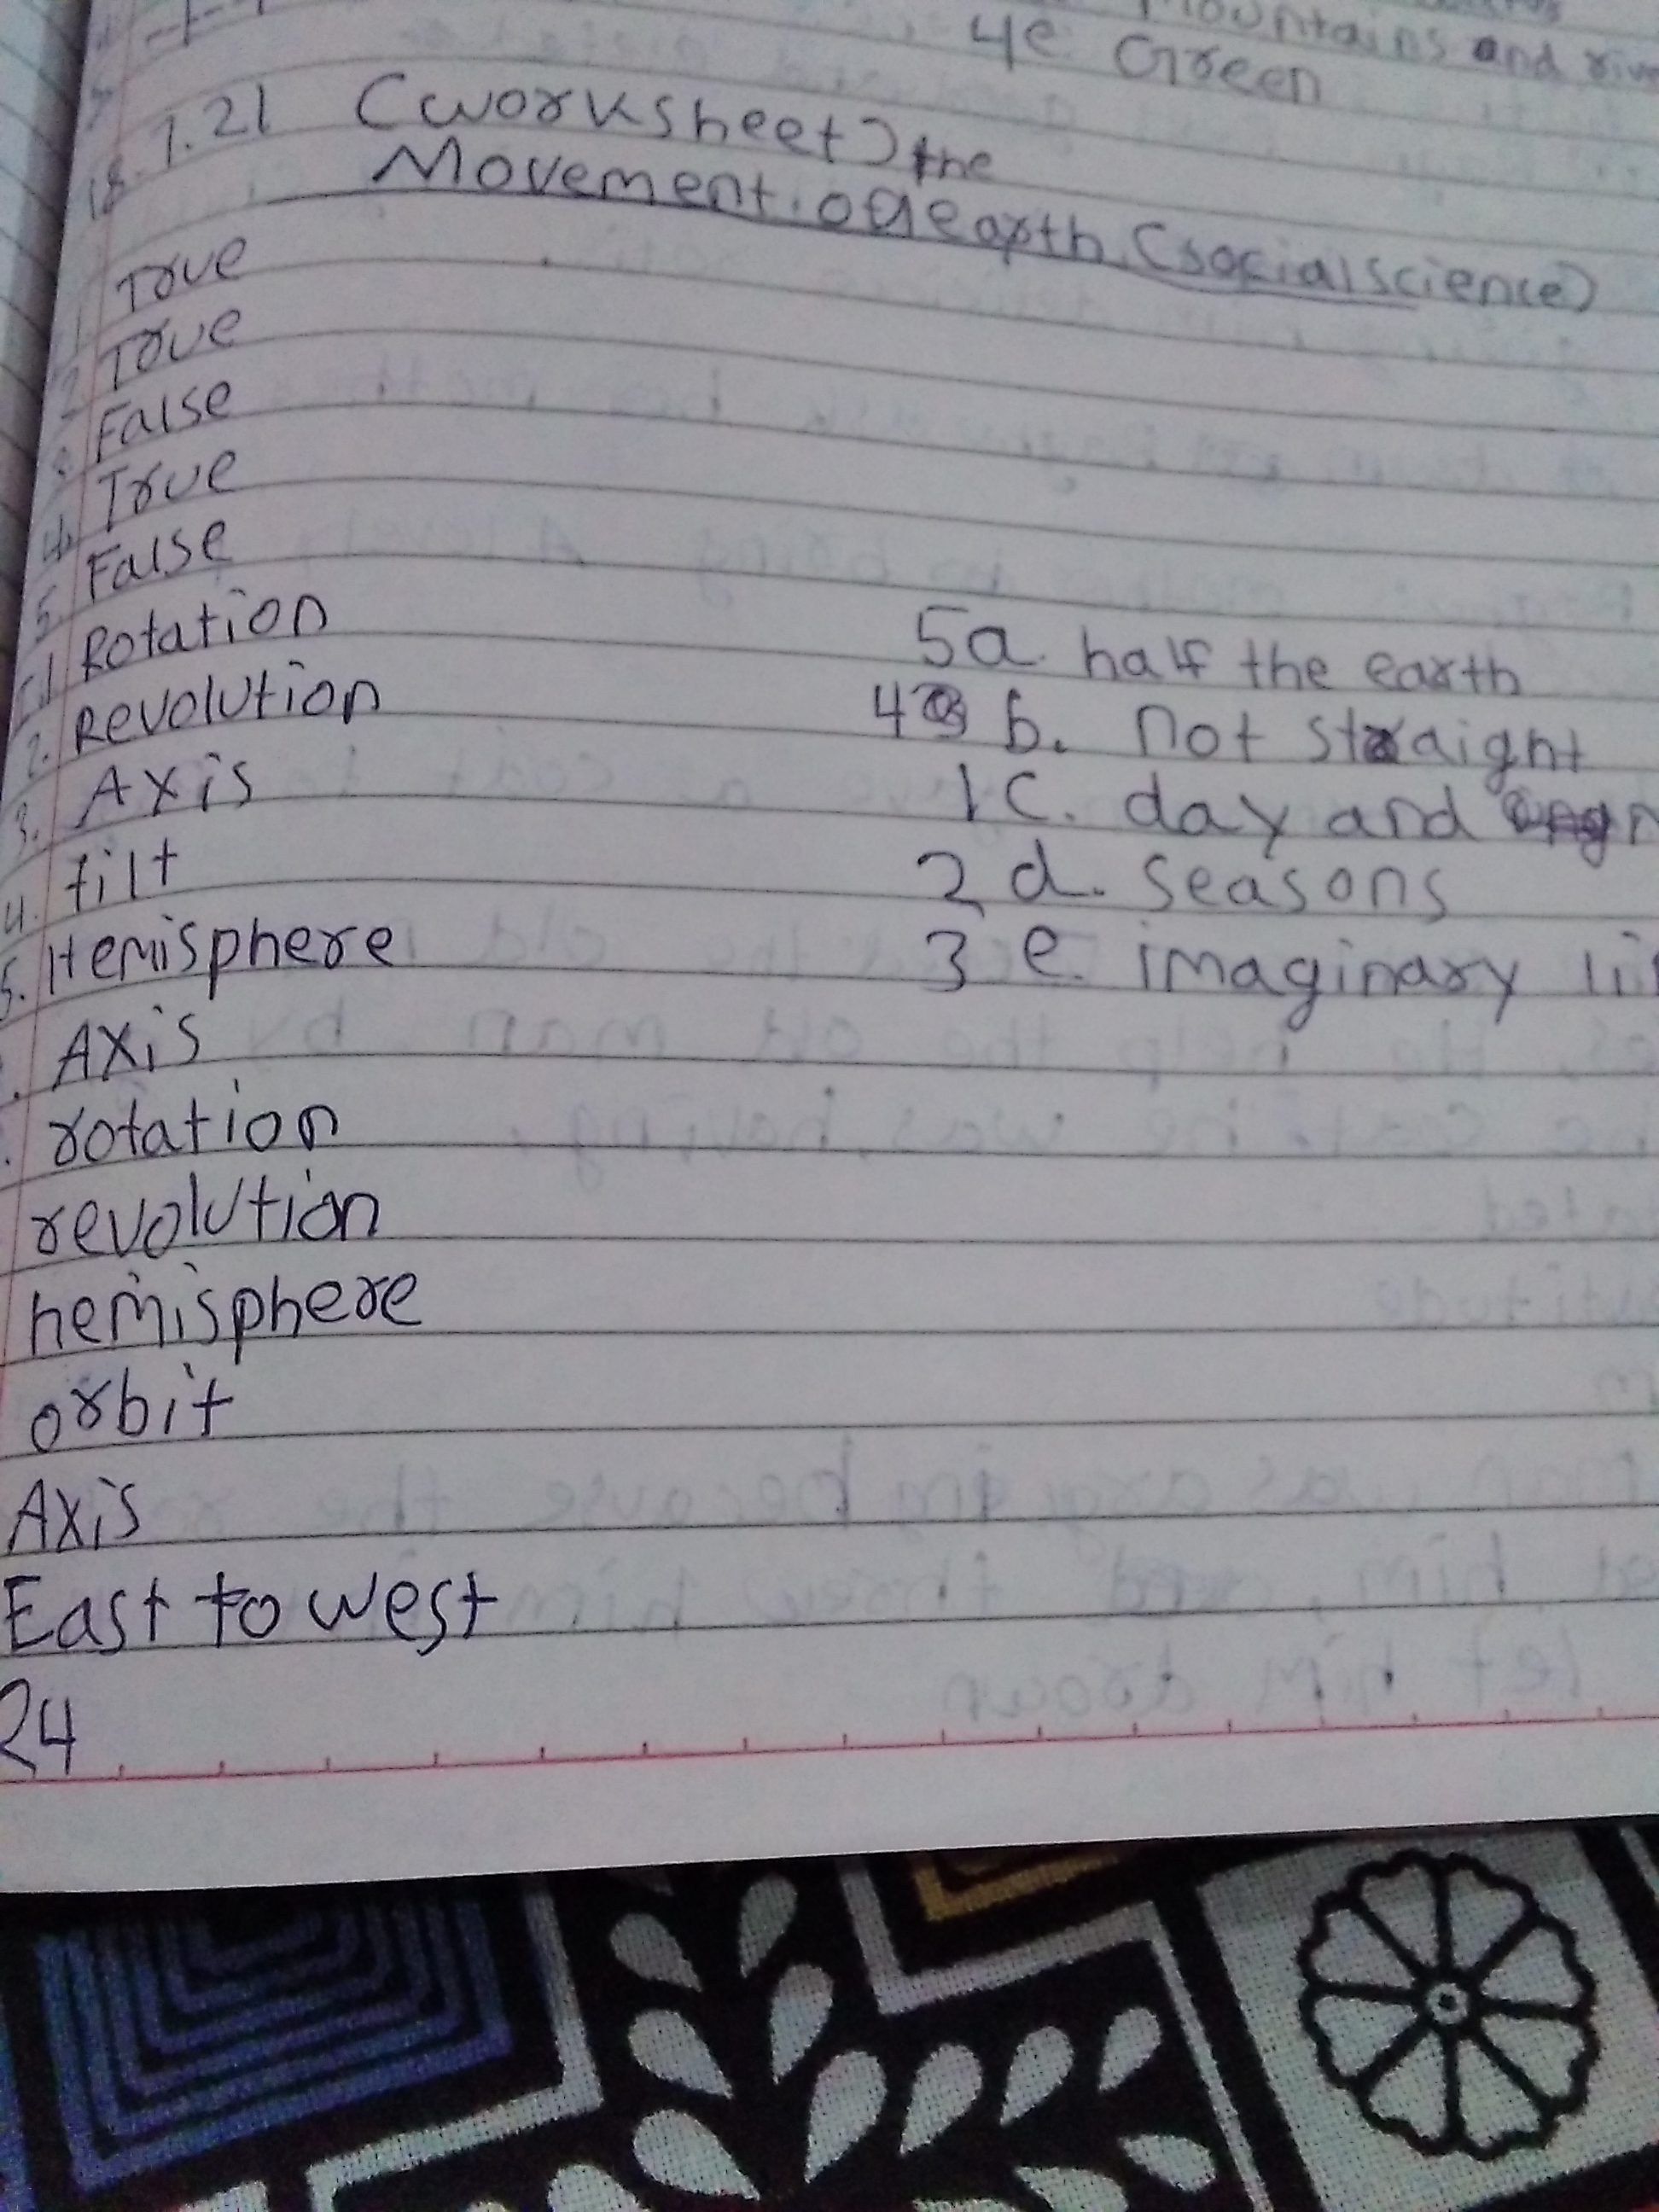 Mountains and
4e Green
18.1.21 (worksheet) the
Movement of earth (social science)
1 True
2 True
3 False
4. True
5. False
1 Rotation 5a. half the earth
2. Revolution 4 b. not straight
3. Axis 1 c. day and
4. tilt 2 d. seasons
5. Hemisphere 3 e. imaginary
Axis
rotation
revolution
hemisphere
orbit
Axis
East to west
24